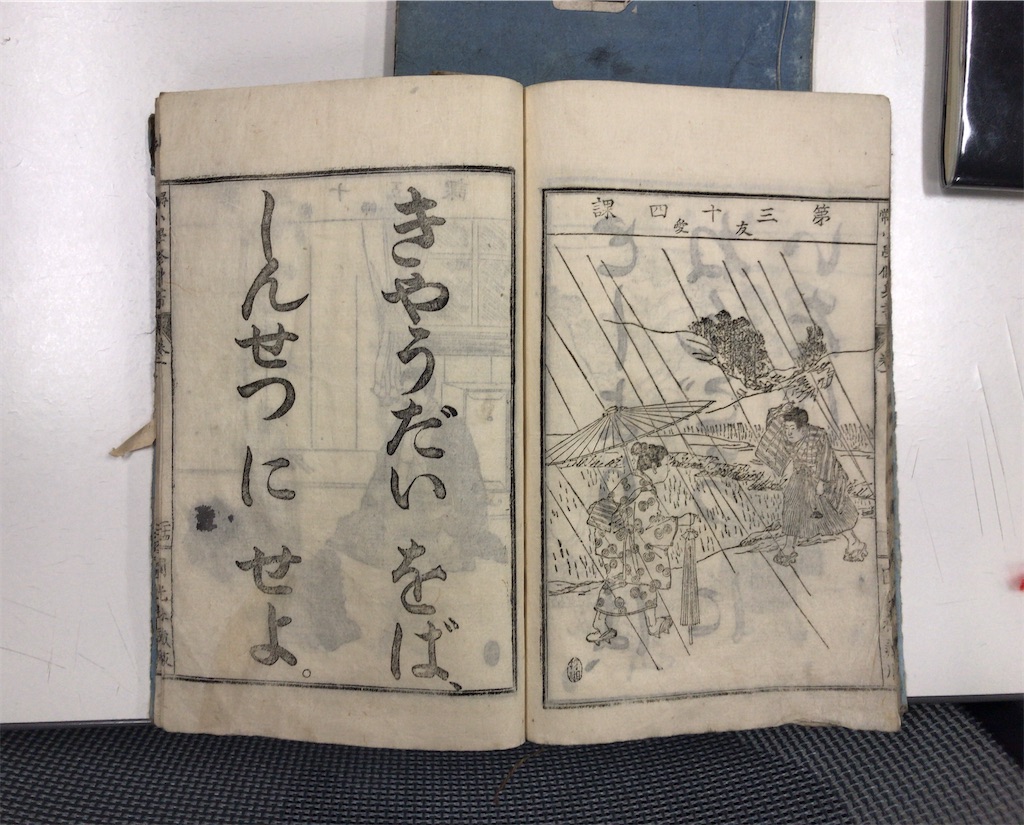 第三十四課
友愛
きやうだい をば、
しんせつ に せよ。